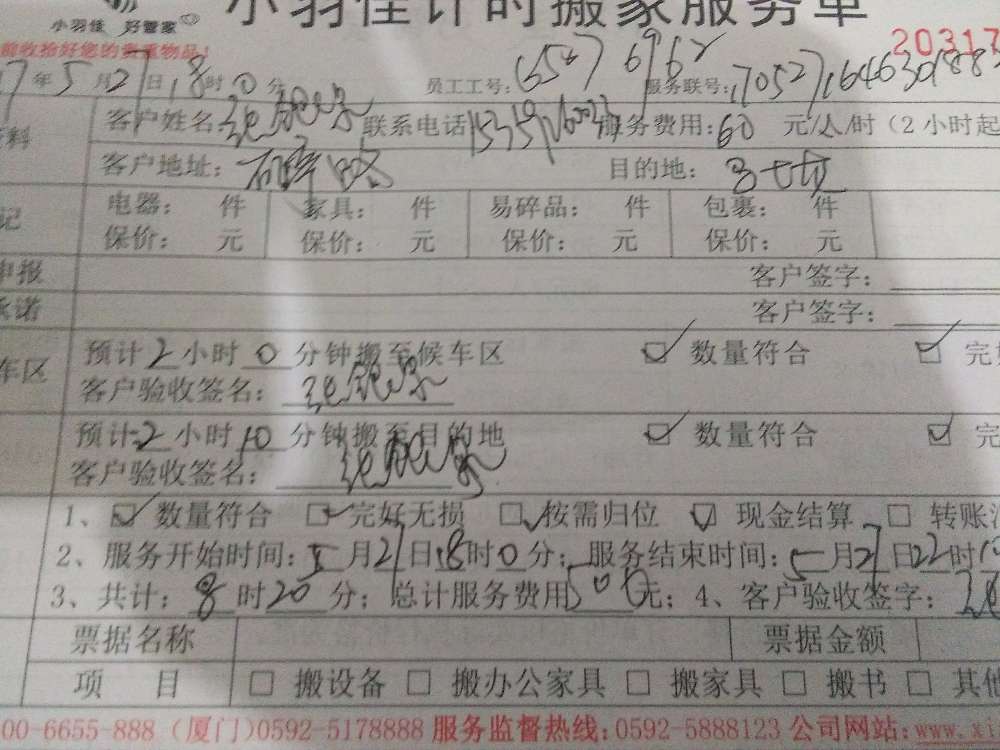 小羽佳 好管家
小羽佳计时搬家服务单
前收拾好您的贵重物品！ 20317
17年5月27日18时0分 员工工号： 服务联号:
客户姓名: 联系电话 服务费用:60元/人/时（2小时起
客户地址: 目的地:
记 电器: 件 家具: 件 易碎品: 件 包裹: 件
保价: 元 保价: 元 保价: 元 保价: 元
申报 客户签字:
承诺 客户签字:
车区 预计2小时0分钟搬至候车区 数量符合
客户验收签名:
预计2小时10分钟搬至目的地 数量符合
客户验收签名:
1、数量符合 完好无损 按需归位 现金结算 转账
2、服务开始时间:5月27日18时0分; 服务结束时间:5月27日22时
3、共计: 8时20分; 总计服务费用500元; 4、客户验收签字:
票据名称 票据金额
项 目 搬设备 搬办公家具 搬家具 搬书 其他
00-6655-888（厦门)0592-5178888 服务监督热线:0592-5888123 公司网站:www.xi